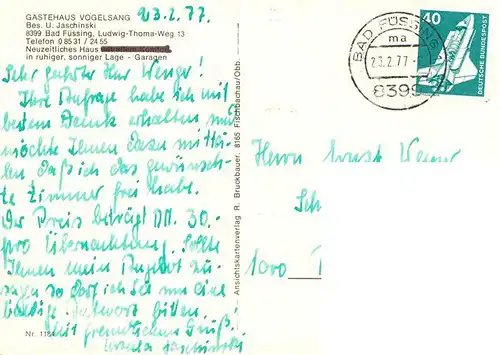 23.2.77.
GÄSTEHAUS VOGELSANG
Bes. U. Jaschinski
8399 Bad Füssing, Ludwig-Thoma-Weg 13
Telefon 0 85 31 / 24 55
Neuzeitliches Haus
in ruhiger, sonniger Lage - Garagen
Sehr geehrter Herr Wenger!
Ihre Anfrage habe ich mit
bestem Dank erhalten und
möchte Ihnen dazu mittei-
len daß ich das gewünsch-
te Zimmer frei habe.
Der Preis beträgt DM. 30.-
pro Übernachtung. Sollte
Ihnen mein Angebot zu-
sagen so darf ich Sie um eine
Antwort bitten.
Mit freundlichem Gruß!
Ursula Jaschinski
Nr. 1184
Ansichtskartenverlag R. Bruckbauer, 8165 Fischbachau/Obb.
BAD FÜSSING
ma
23.2.77
8399
40
DEUTSCHE BUNDESPOST
Herrn Ernst Wenger
Sch
1000